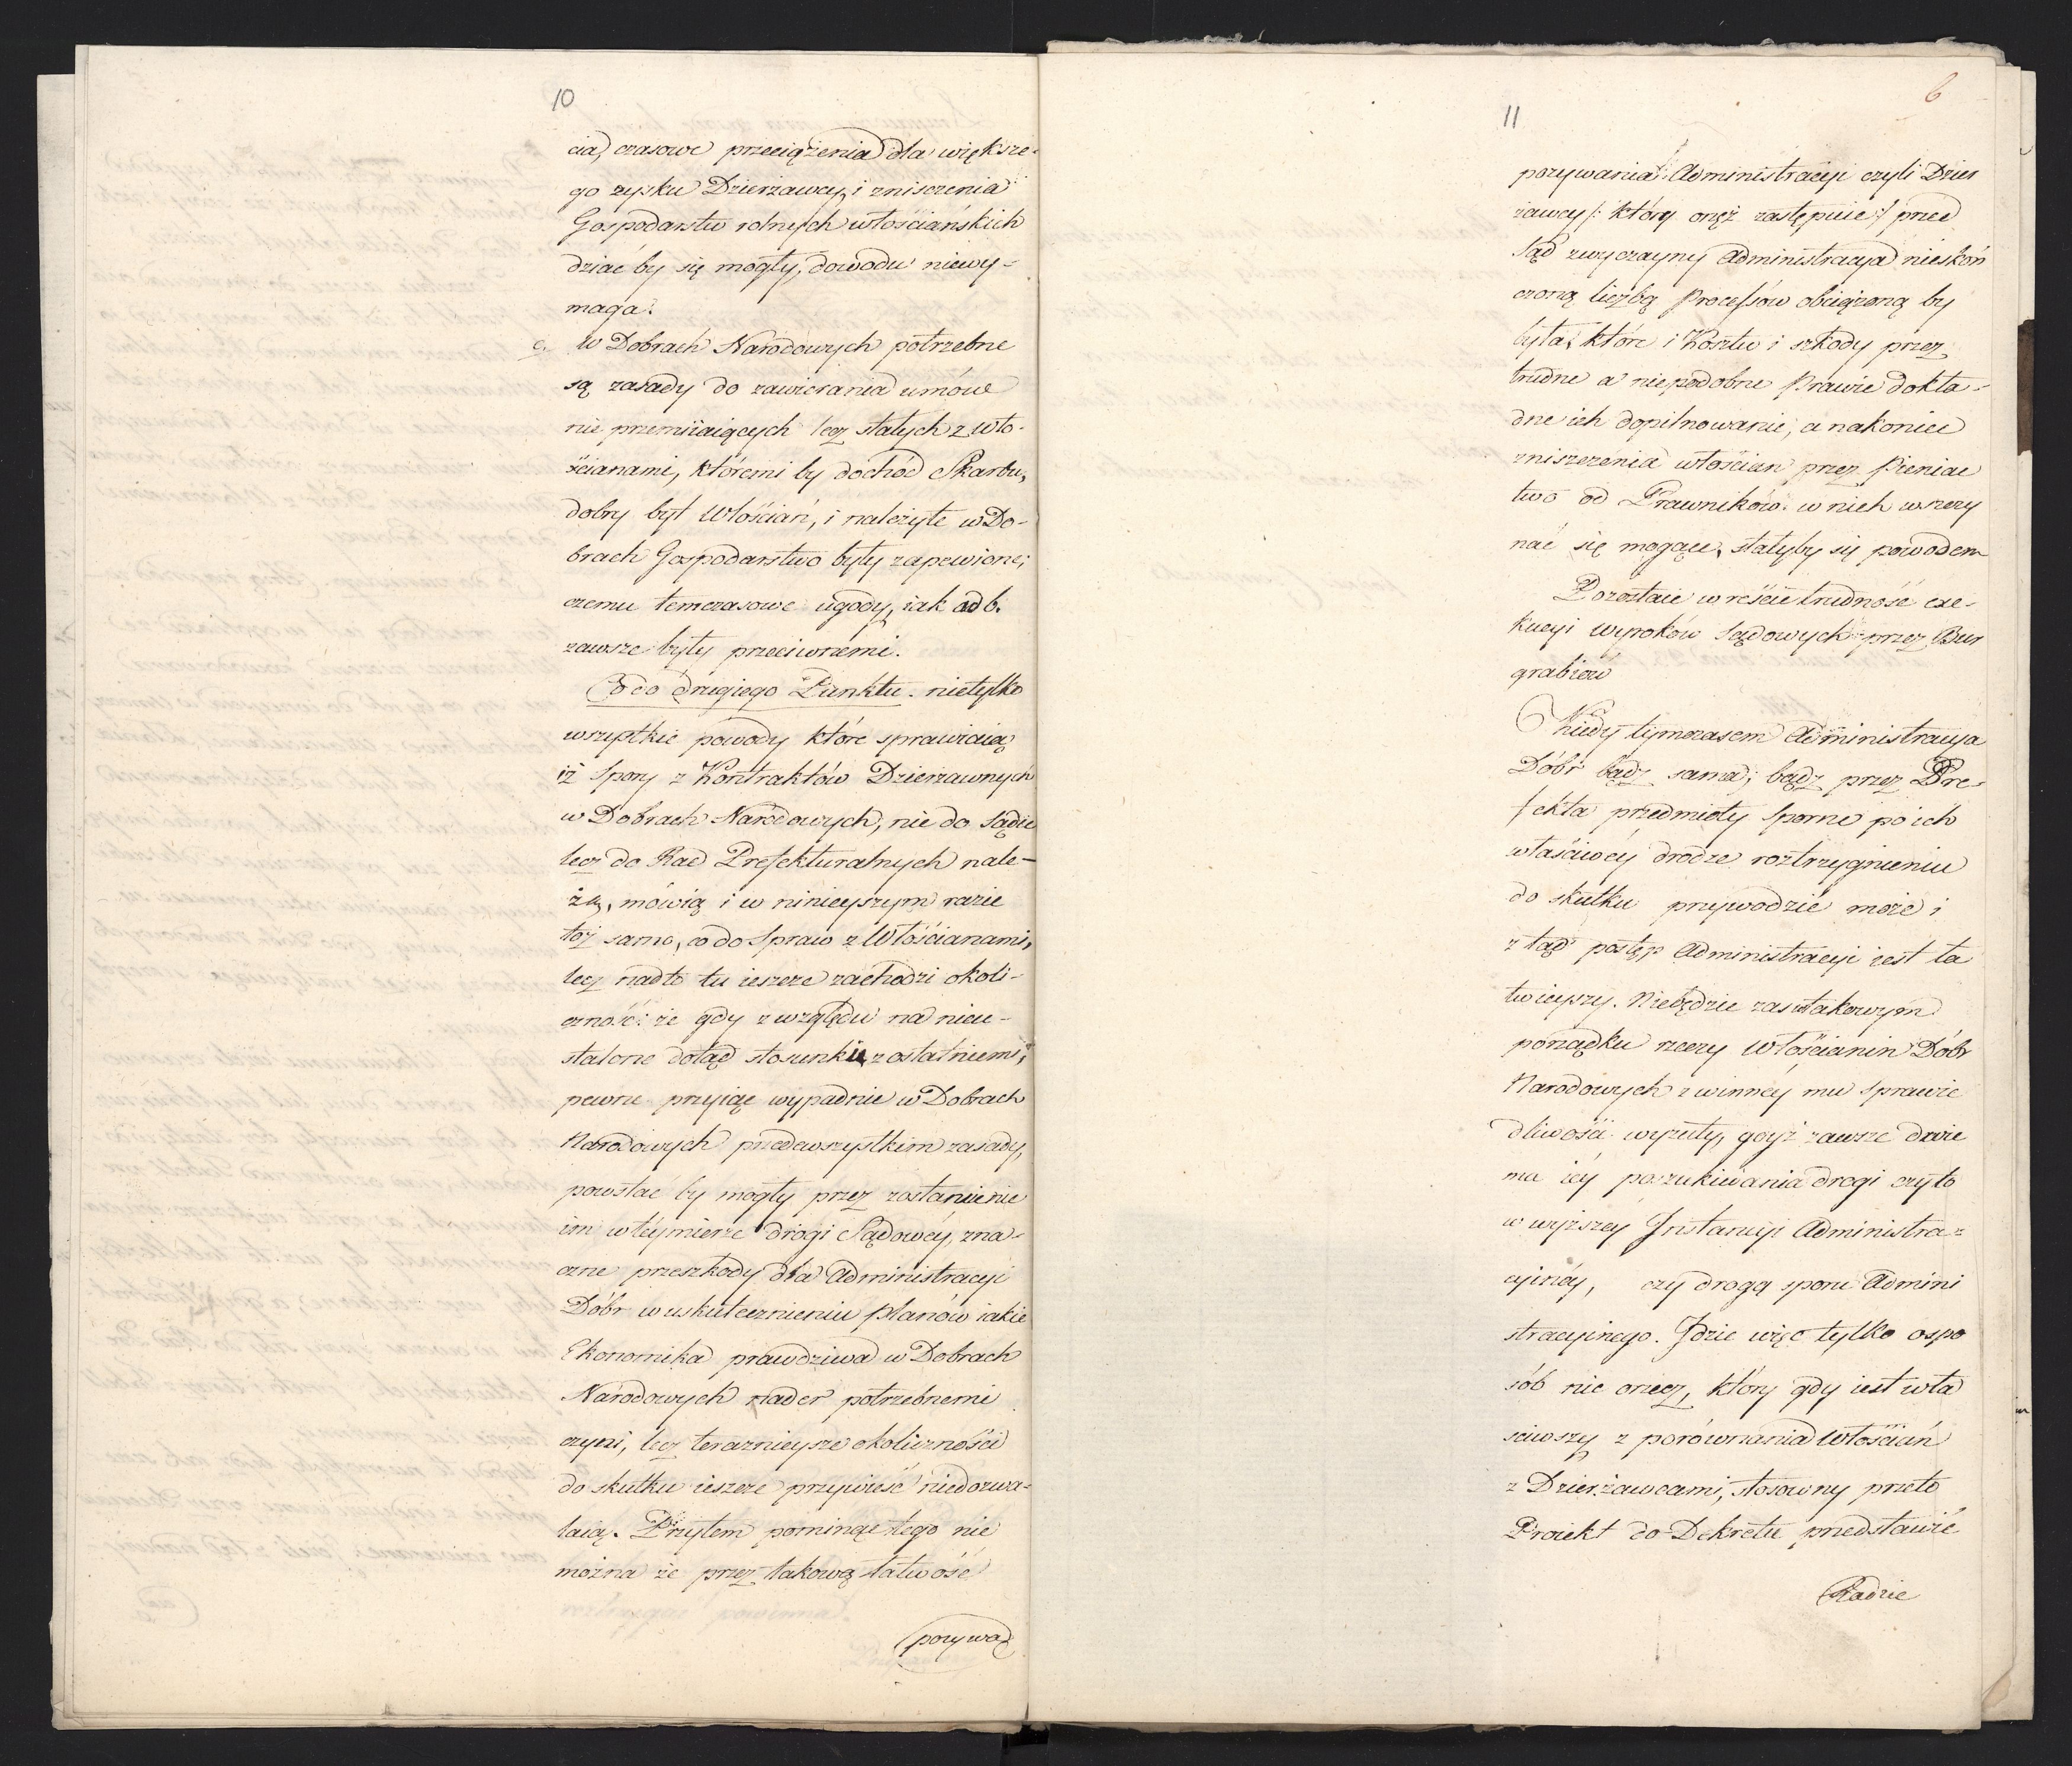 10
cia, czasowe przeciążenia dla większe-
go zysku Dzierżawcy, i zniszczenia
Gospodarstw rolnych włościańskich
dziać by się mogły, dowodu niewy-
maga.
c. W Dobrach Narodowych potrzebne
są zasady do zawierania umów
nie przemiiaiących lecz stałych z wło-
ścianami, któremi by dochód Skarbu,
dobry byt Włościan, i należyte w Do-
brach Gospodarstwo były zapewione;
czemu temczasowe ugody, iak ad b.
zawsze były przeciwnemi.
Co do drugiego Punktu. nietylko
wszystkie powody które sprawiaią
iż Spory z Kontraktów Dzierzawnych
w Dobrach Narodowych, nie do Sądu
lecz do Rad Prefekturalnych nale-
żą, mówią i w ninieyszym razie
toż samo, co do Spraw z Włościanami,
lecz nadto tu ieszcze zachodzi okoli-
czność: że gdy z względu na nieu-
stalone dotąd stosunki z ostatniemi,
pewne przyiąć wypadnie w Dobrach
Narodowych przedewszystkim zasady,
powstać by mogły przez zostawienie
im w teymierze drogi Sądowey, zna-
czne przeszkody dla Administracyi
Dóbr w uskutecznieniu planów iakie
Ekonomika prawdziwa w Dobrach
Narodowych nader potrzebnemi
czyni, lecz teraznieysze okoliczności
do skutku ieszcze przywieść niedozwa-
laią. Przytem pominąć tego nie
można że przez takową łatwość
pozywa
11
6
pozywania Administracyi czyli Dzier
żawcy /: który onęż zastępuie :/ przed
Sąd zwyczayny Administracya nieskoń
czoną liczbą Processów obciążoną by
była, które i Kosztu i szkody przez
trudne a niepodobne Prawie dokła-
dne ich dopilnowanie, a nakoniec
zniszczenia włościan przez Pieniac
two od Prawników w nich wszczy
nać się mogące, stałyby się powodem
Pozostaie wreście trudność exe-
kucyi wyroków Sądowych przez Bur
grabiów
Kiedy tymczasem Administracya
Dóbr bądz sama, bądz przez Pre-
fekta przedmioty Sporne po ich
właściwey drodze roztrzygnieniu
do skutku przywodzić może i
z tąd postęp Administracyi iest ła
twieyszy. Niebędzie zaś w takowym
porządku rzeczy Włościanin Dóbr
Narodowych z winney mu sprawie
dliwości wyzuty, gdyż zawsze dwie
ma iey poszukiwania drogi czyto
w wyższey Instancyi Administra-
cyiney, czy drogą sporu Admini
stracyinego. Jdzie więc tylko o spo
sób nie orzecz, który gdy iest wła
ściwszy z porównania Włościan
z Dzierżawcami, stosowny przeto
Proiekt do Dekretu przedstawić
Radzie